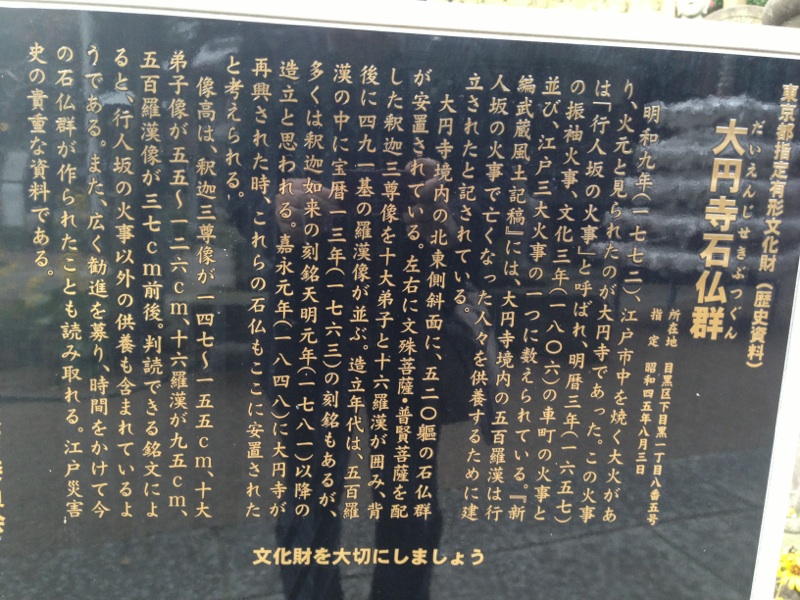 東京都指定有形文化財（歴史資料）
だいえんじせきぶつぐん
大円寺石仏群
所在地　目黒区下目黒一丁目八番五号
指　定　昭和四五年八月三日
明和九年（一七七二）、江戸市中を焼く大火があ
り、火元と見られたのが大円寺であった。この火事
は「行人坂の火事」と呼ばれ、明暦三年（一六五七）
の振袖火事、文化三年（一八〇六）の車町の火事と
並び、江戸三大火事の一つに数えられている。『新
編武蔵風土記稿』には、大円寺境内の五百羅漢は行
人坂の火事で亡くなった人々を供養するために建
立されたと記されている。
大円寺境内の北東側斜面に、五二〇軀の石仏群
が安置されている。左右に文殊菩薩・普賢菩薩を配
した釈迦三尊像を十大弟子と十六羅漢が囲み、背
後に四九一基の羅漢像が並ぶ。造立年代は、五百羅
漢の中に宝暦一三年（一七六三）の刻銘もあるが、
多くは釈迦如来の刻銘天明元年（一七八一）以降の
造立と思われる。嘉永元年（一八四八）に大円寺が
再興された時、これらの石仏もここに安置された
と考えられる。
像高は、釈迦三尊像が一四七～一五五ｃｍ、十大
弟子像が五五～一二六ｃｍ、十六羅漢が九五ｃｍ、
五百羅漢像が三七ｃｍ前後。判読できる銘文によ
ると、行人坂の火事以外の供養も含まれているよ
うである。また、広く勧進を募り、時間をかけて今
の石仏群が作られたことも読み取れる。江戸災害
史の貴重な資料である。
文化財を大切にしましょう